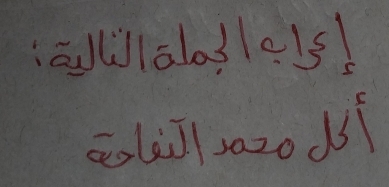 إعراب الجملة التالية:
أكل محمد التفاحة